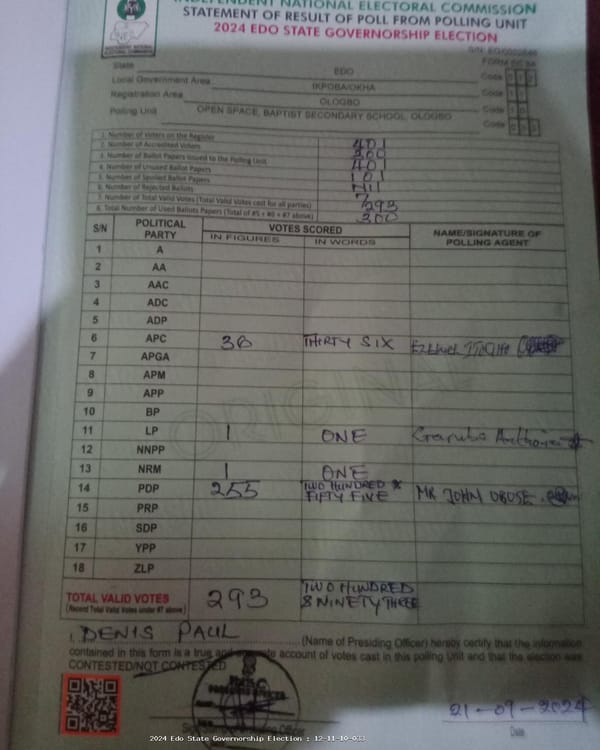 INDEPENDENT NATIONAL ELECTORAL COMMISSION
STATEMENT OF RESULT OF POLL FROM POLLING UNIT
2024 EDO STATE GOVERNORSHIP ELECTION
State EDO Code
Local Government Area IKPOBA/OKHA Code
Registration Area OLOGBO Code
Polling Unit OPEN SPACE, BAPTIST SECONDARY SCHOOL, OLOGBO Code
1. Number of Voters on the Register 401
2. Number of Accredited Voters 300
3. Number of Ballot Papers Issued to the Polling Unit 401
4. Number of Unused Ballot Papers 101
5. Number of Spoiled Ballot Papers Nil
6. Number of Rejected Ballots 7
7. Number of Total Valid Votes (Total Valid Votes cast for all parties) 293
8. Total Number of Used Ballots Papers (Total of #5 + #6 + #7 above) 300
S/N POLITICAL PARTY VOTES SCORED NAME/SIGNATURE OF POLLING AGENT
IN FIGURES IN WORDS
1 A
2 AA
3 AAC
4 ADC
5 ADP
6 APC 36 THIRTY SIX
7 APGA
8 APM
9 APP
10 BP
11 LP 1 ONE Garuba
12 NNPP
13 NRM 1 ONE
14 PDP 255 TWO HUNDRED & FIFTY FIVE MR JOHN OBUSE
15 PRP
16 SDP
17 YPP
18 ZLP
TOTAL VALID VOTES 293 TWO HUNDRED & NINETY THREE
(Record Total Valid Votes under #7 above)
I, DENIS PAUL (Name of Presiding Officer) hereby certify that the information
contained in this form is a true and account of votes cast in this polling unit and that the election was
CONTESTED/NOT CONTESTED
21-09-2024
Date
2024 Edo State Governorship Election : 12-11-10-033